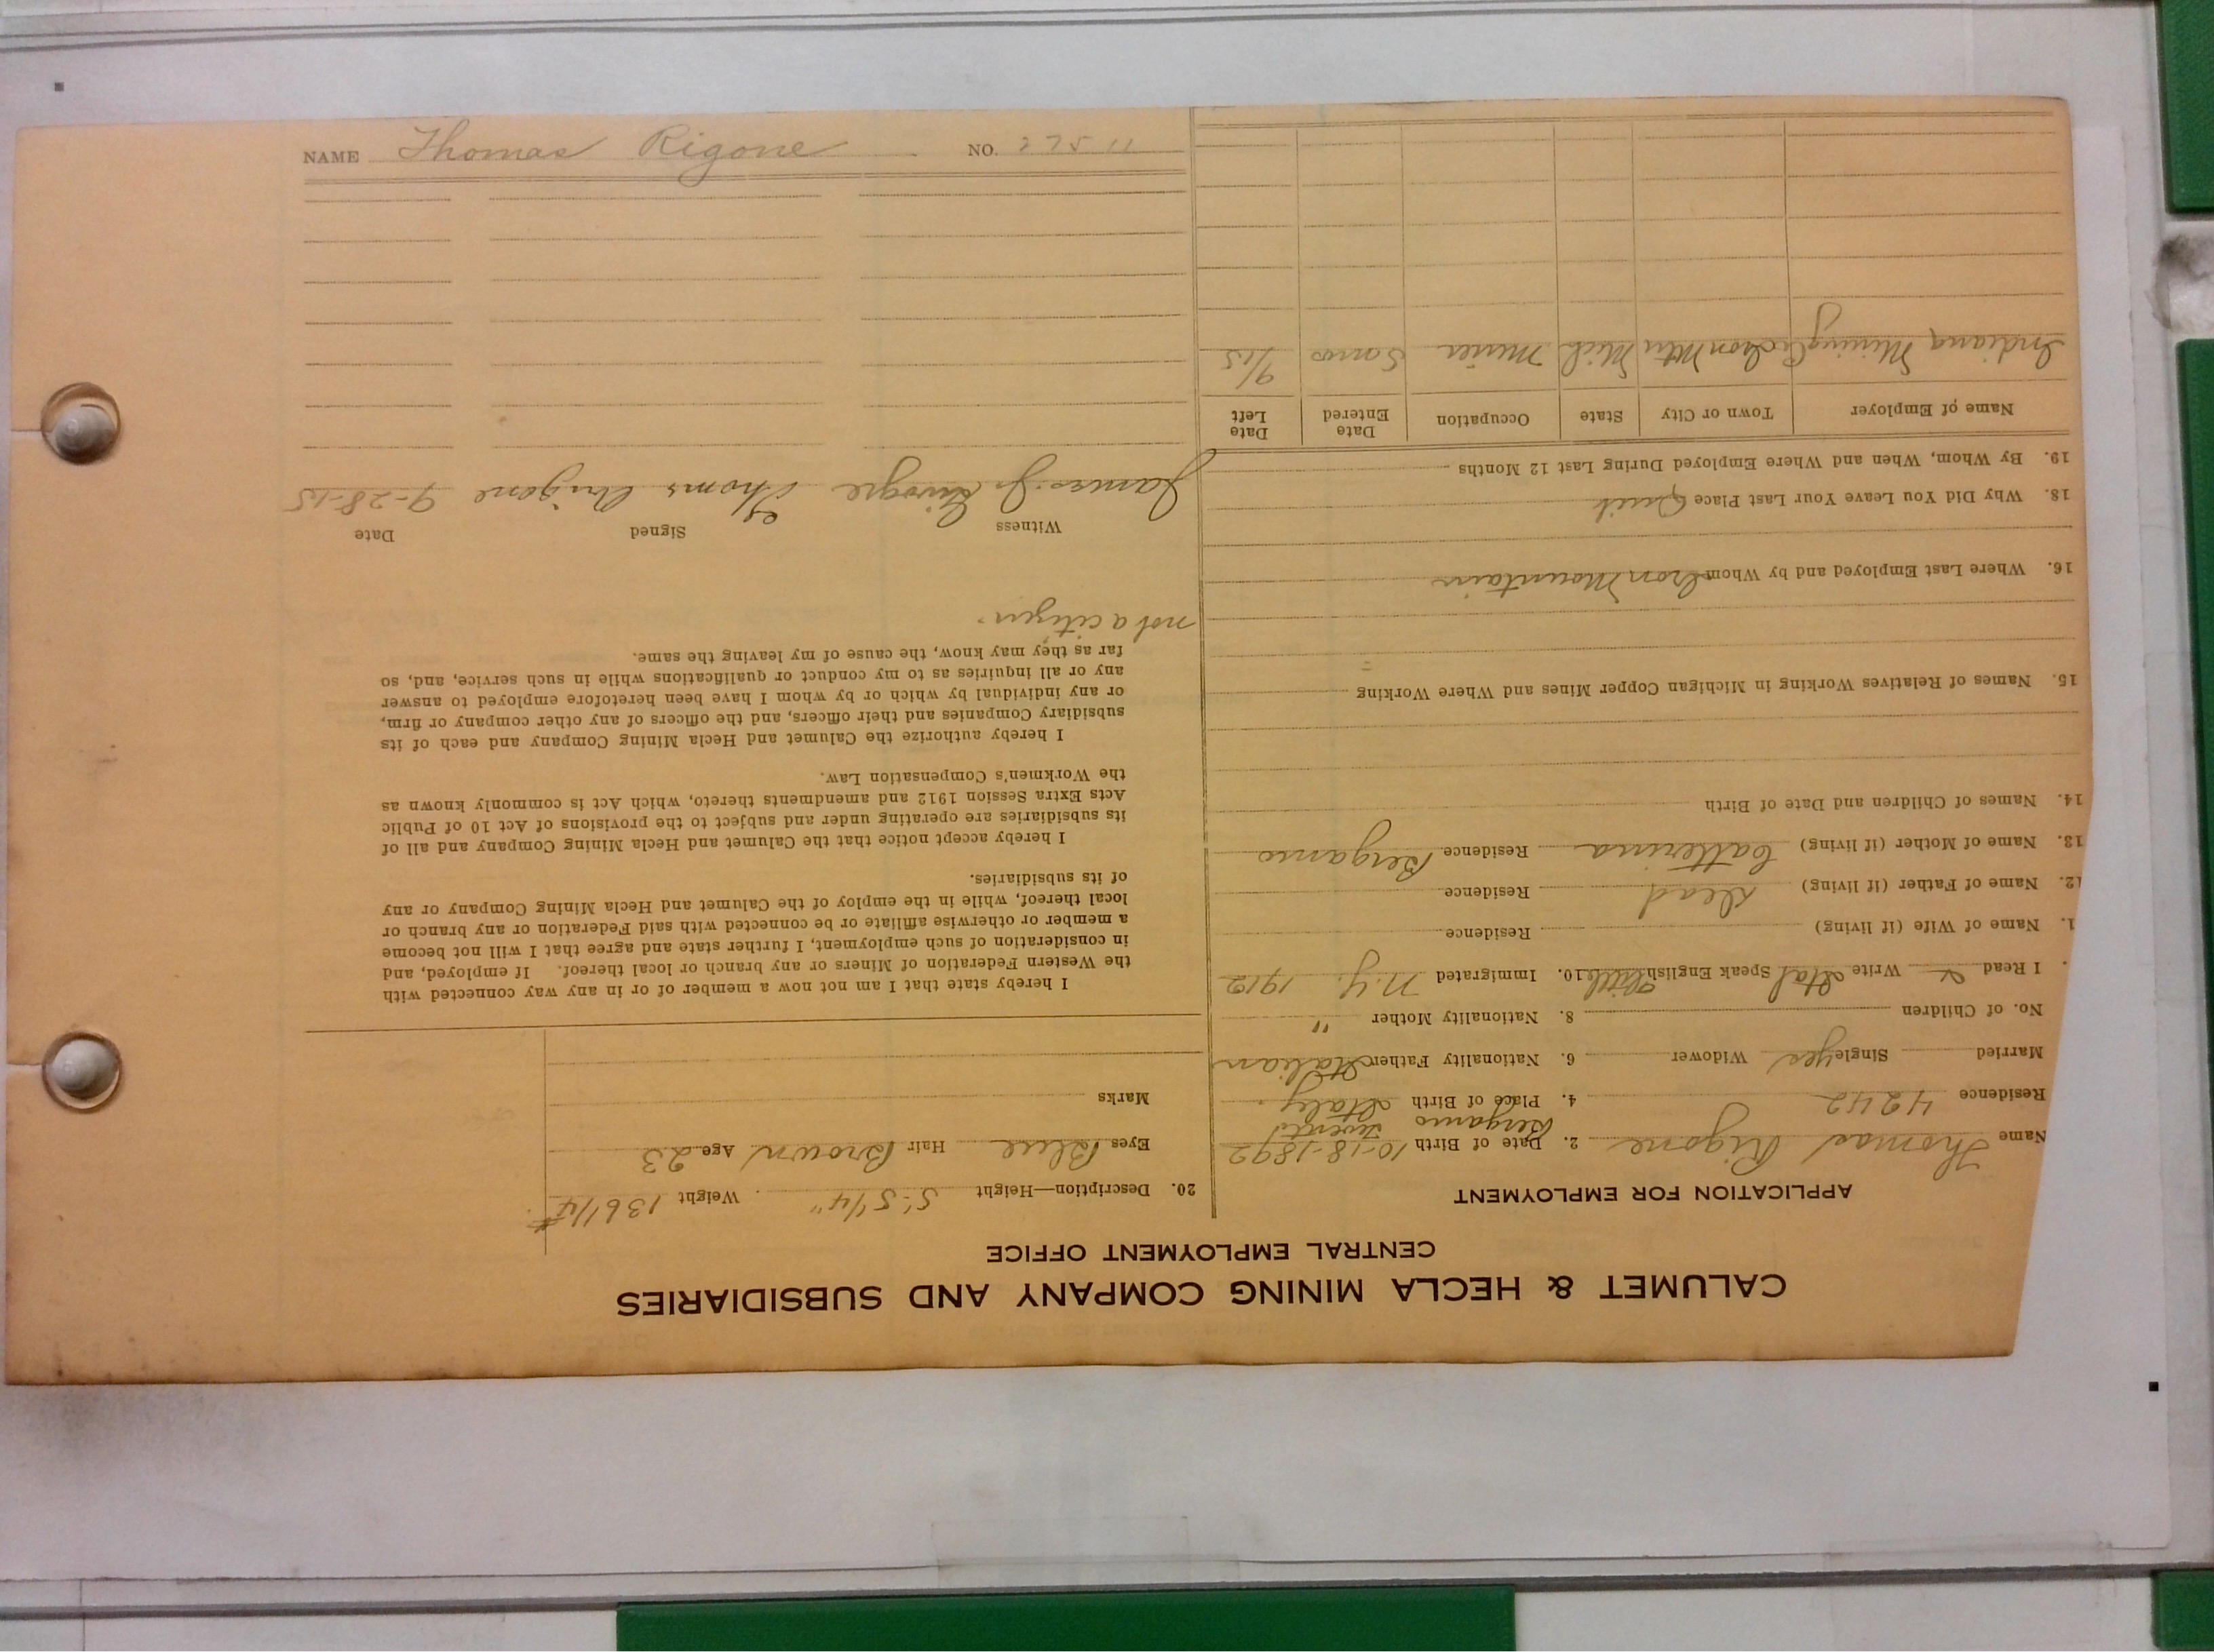 NAME Thomas Rigone NO. 27511
CALUMET & HECLA MINING COMPANY AND SUBSIDIARIES
CENTRAL EMPLOYMENT OFFICE
APPLICATION FOR EMPLOYMENT
Name Thomas Rigone 2. Date of Birth 10-18-1892
Residence 4242 4. Place of Birth Bergamo Italy
Married Single yes Widower 6. Nationality Father Italian
No. of Children 8. Nationality Mother "
I Read Write Ital Speak English little 10. Immigrated N.Y. 1912
1. Name of Wife (if living) Residence
12. Name of Father (if living) Dead Residence
13. Name of Mother (if living) Catterina Residence Bergamo
14. Names of Children and Date of Birth
15. Names of Relatives Working in Michigan Copper Mines and Where Working
16. Where Last Employed and by Whom Iron Mountain
18. Why Did You Leave Your Last Place Quit
19. By Whom, When and Where Employed During Last 12 Months
Name of Employer Town or City State Occupation Date Entered Date Left
Indiana Mining Co Iron Mtn Mich Miner 5 mos 9/15
20. Description—Height 5'-5 1/4" Weight 136 1/4 #
Eyes Blue Hair Brown Age 23
Marks
I hereby state that I am not now a member of or in any way connected with
the Western Federation of Miners or any branch or local thereof. If employed, and
in consideration of such employment, I further state and agree that I will not become
a member or otherwise affiliate or be connected with said Federation or any branch or
local thereof, while in the employ of the Calumet and Hecla Mining Company or any
of its subsidiaries.
I hereby accept notice that the Calumet and Hecla Mining Company and all of
its subsidiaries are operating under and subject to the provisions of Act 10 of Public
Acts Extra Session 1912 and amendments thereto, which Act is commonly known as
the Workmen's Compensation Law.
I hereby authorize the Calumet and Hecla Mining Company and each of its
subsidiary Companies and their officers, and the officers of any other company or firm,
or any individual by which or by whom I have been heretofore employed to answer
any or all inquiries as to my conduct or qualifications while in such service, and, so
far as they may know, the cause of my leaving the same.
not a citizen.
Witness Signed Date
James J. Thoms Arigone 9-28-15